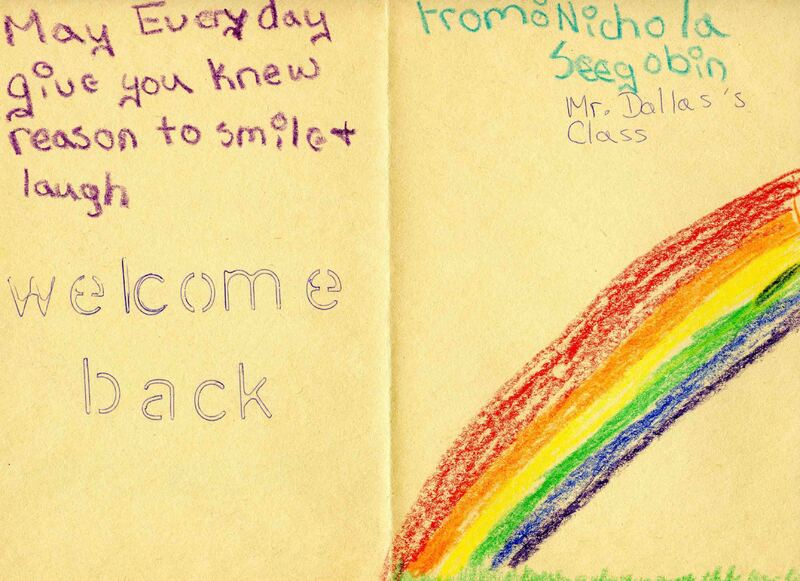 May Everyday
give you knew
reason to smile +
laugh
welcome
back
From: Nichola
Seegobin
Mr. Dallas's
Class